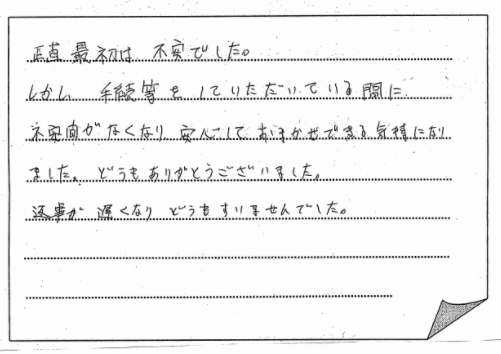 正直最初は 不安でした。
しかし 手続等をしていただいている間に
不安面がなくなり 安心しておまかせできる気持になり
ました。どうもありがとうございました。
返事が 遅くなり どうもすいませんでした。